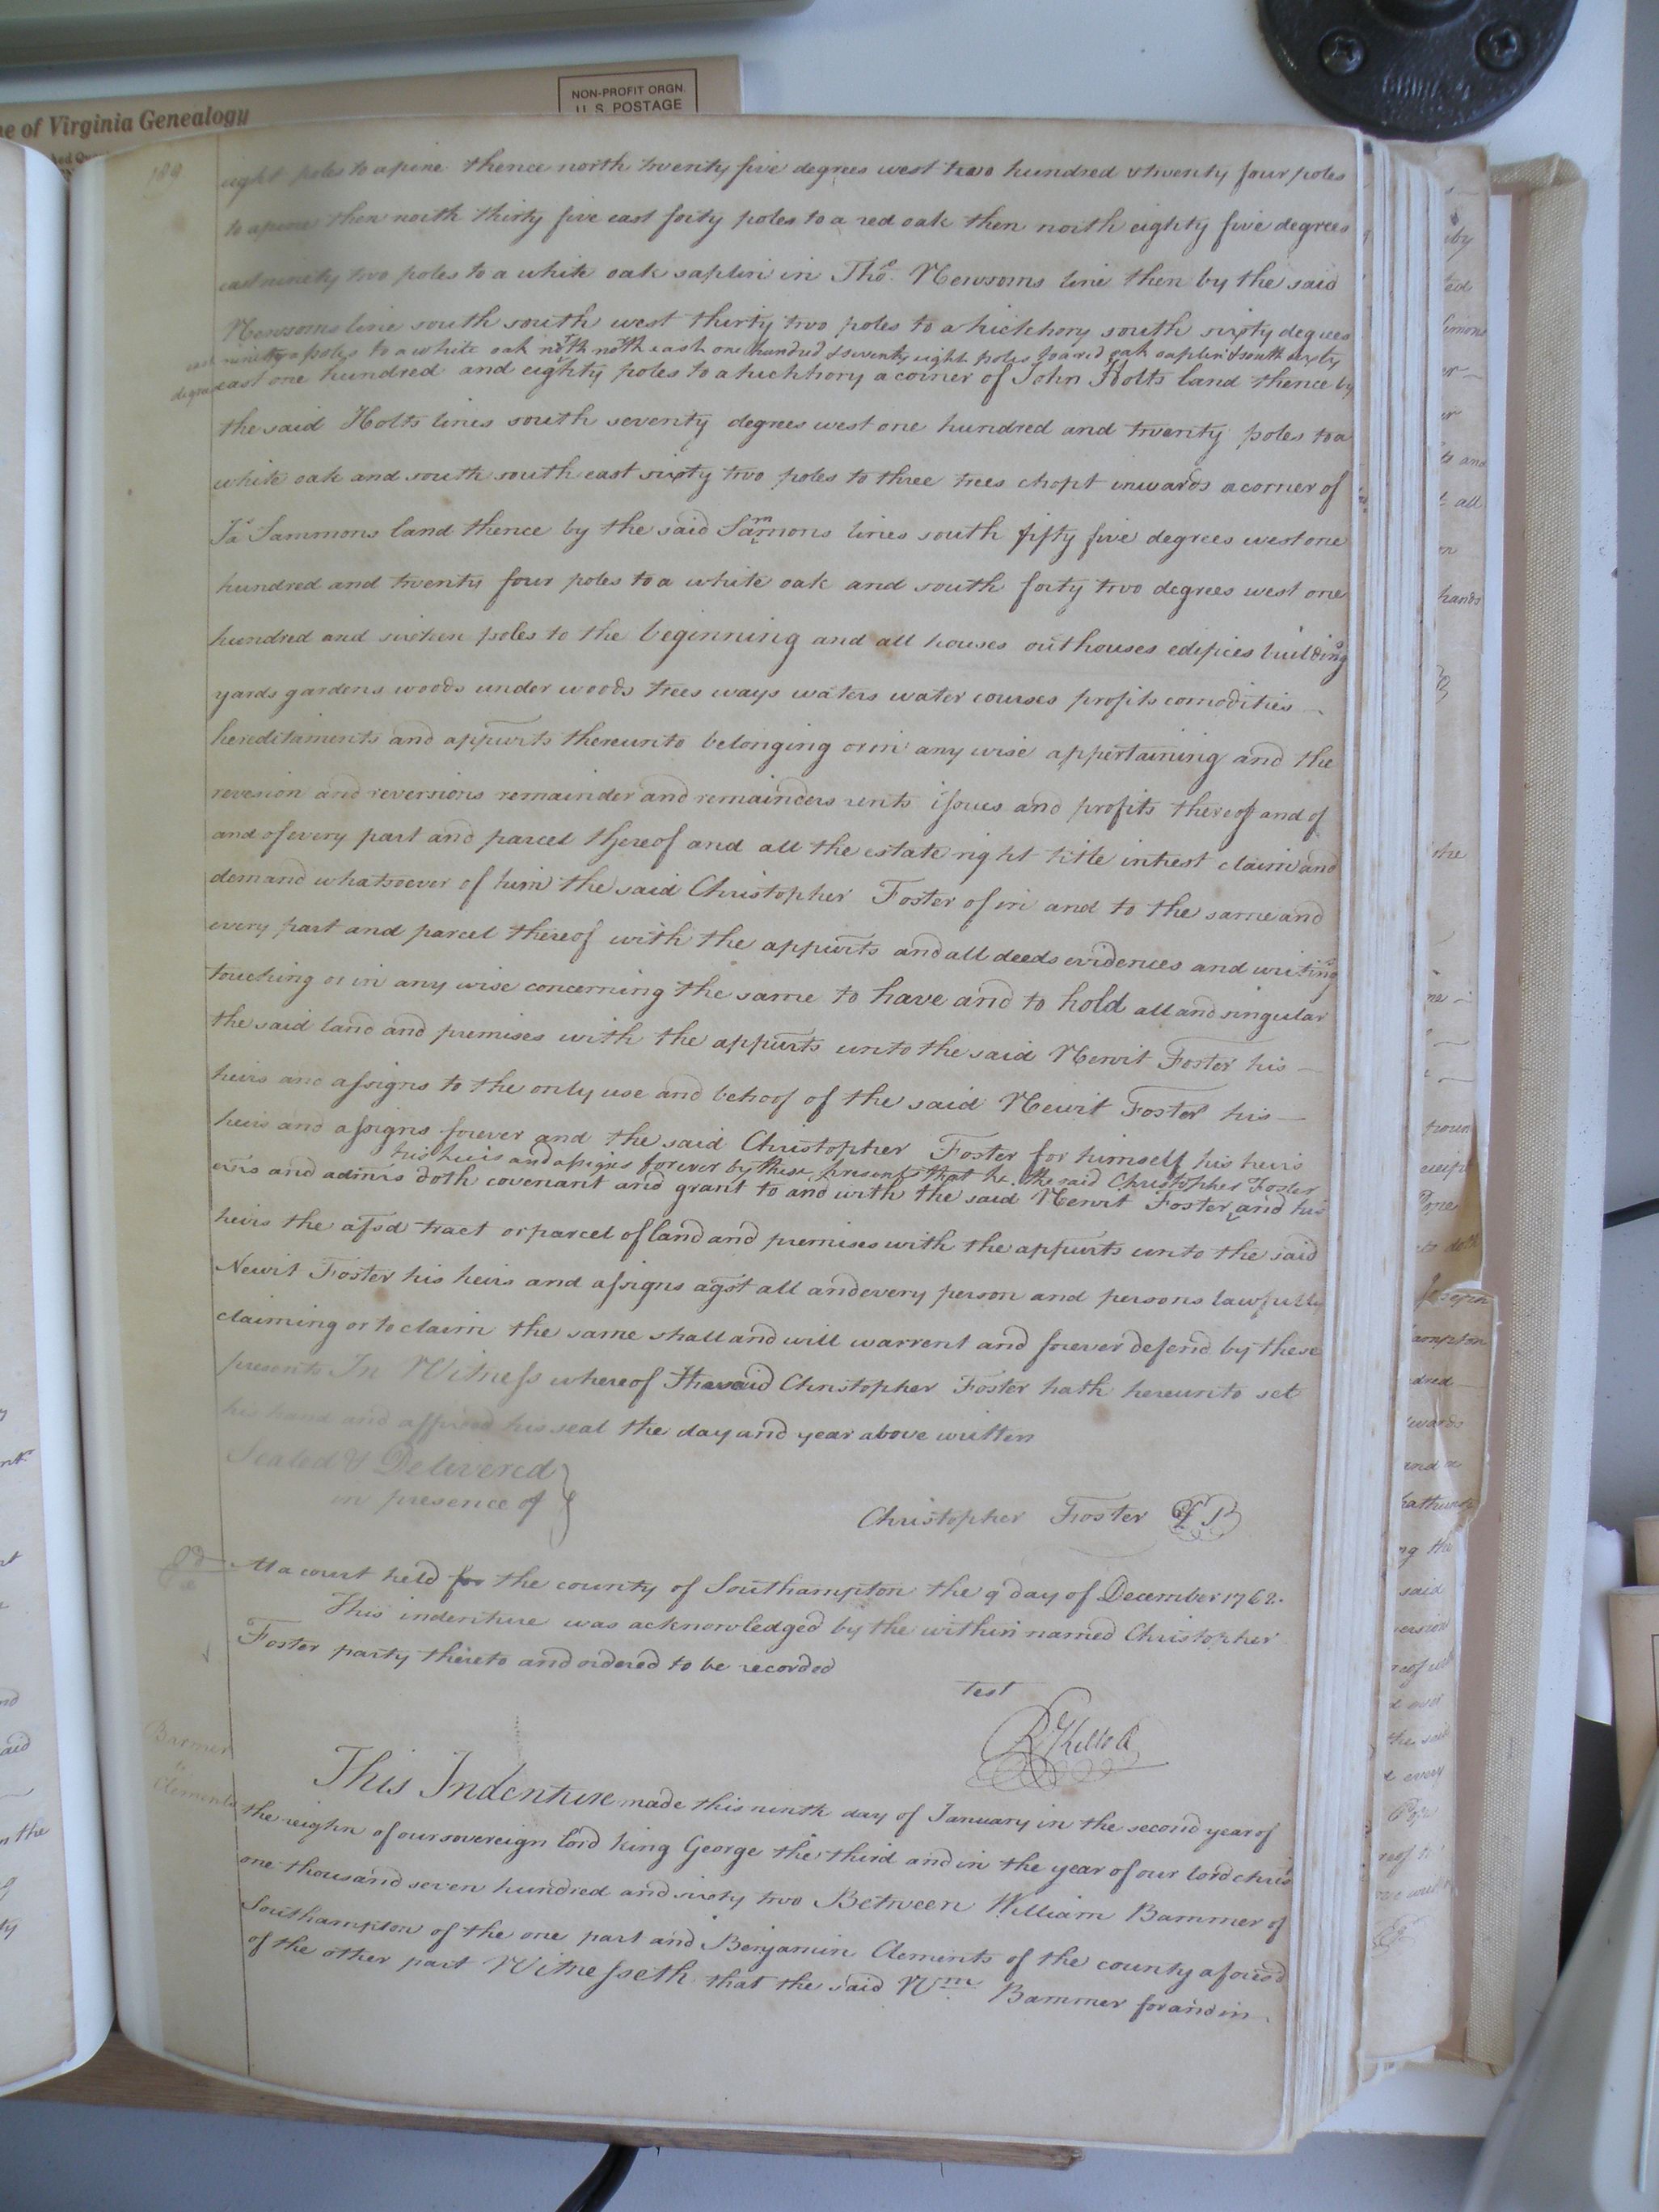 e of Virginia Genealogy
NON-PROFIT ORGN.
U.S. POSTAGE
189
eight poles to a pine thence north twenty five degrees west two hundred & twenty four poles
to a pine then north thirty five east forty poles to a red oak then north eighty five degrees
east ninety two poles to a white oak saplin in Tho.s Newsoms line then by the said
Newsoms line south south west thirty two poles to a hickhory south sixty degrees
east ninety poles to a white oak north north east one hundred & seventy eight poles to a red oak saplin & south sixty
degrees east one hundred and eighty poles to a hickhory a corner of John Holts land thence by
the said Holts lines south seventy degrees west one hundred and twenty poles to a
white oak and south south east sixty two poles to three trees chopt inwards a corner of
Ja.s Sammons land thence by the said Samons lines south fifty five degrees west one
hundred and twenty four poles to a white oak and south forty two degrees west one
hundred and sixteen poles to the beginning and all houses outhouses edifices buildings
yards gardens woods under woods trees ways waters water courses profits comodities
hereditaments and appurts thereunto belonging or in any wise appertaining and the
revesion and reversions remainder and remainders rents issues and profits thereof and of
and of every part and parcel thereof and all the estate right title intrest claim and
demand whatsoever of him the said Christopher Foster of in and to the same and
every part and parcel thereof with the appurts and all deeds evidences and writings
touching or in any wise concerning the same to have and to hold all and singular
the said land and premises with the appurts unto the said Newit Foster his
heirs and assigns to the only use and behoof of the said Newit Foster his
heirs and assigns forever and the said Christopher Foster for himself his heirs
his heirs and assigns forever by these presents that he the said Christopher Foster
exrs and admrs doth covenant and grant to and with the said Newit Foster and his
heirs the afsd tract or parcel of land and premises with the appurts unto the said
Newit Foster his heirs and assigns agst all and every person and persons lawfully
claiming or to claim the same shall and will warrent and forever defend by these
presents In Witness whereof the said Christopher Foster hath hereunto set
his hand and affixed his seal the day and year above written
Sealed & Delivered
in presence of
Christopher Foster LS
At a court held for the county of Southampton the 9 day of December 1762.
This indenture was acknowledged by the within named Christopher
Foster party thereto and ordered to be recorded
Test
R Kello Cl
Bammer
to
Clements
This Indenture made this ninth day of January in the second year of
the reighn of our sovereign lord king George the third and in the year of our lord chris
one thousand seven hundred and sixty two Between William Bammer of
Southampton of the one part and Benjamin Clements of the county aforesd
of the other part Witnesseth that the said Wm Bammer for and in